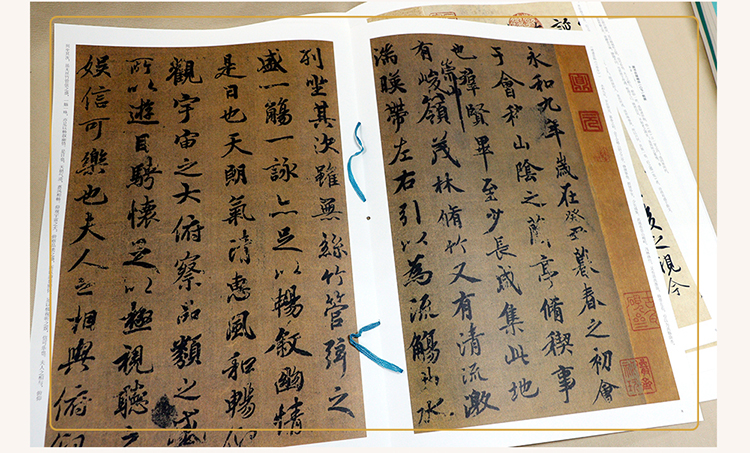 永和九年歲在癸丑暮春之初會
于會稽山陰之蘭亭脩稧事
也羣賢畢至少長咸集此地
有崇山峻領茂林脩竹又有清流激
湍暎帶左右引以為流觴曲水
列坐其次雖無絲竹管弦之
盛一觴一詠亦足以暢敘幽情
是日也天朗氣清惠風和暢仰
觀宇宙之大俯察品類之盛
所以遊目騁懷足以極視聽之
娛信可樂也夫人之相與俯仰
後之視今